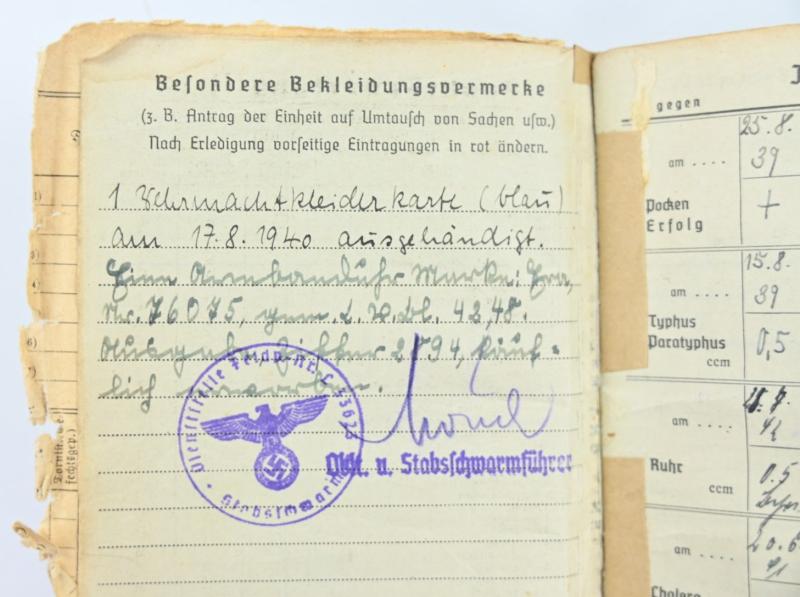 Besondere Bekleidungsvermerke
(z. B. Antrag der Einheit auf Umtausch von Sachen usw.)
Nach Erledigung vorseitige Eintragungen in rot ändern.
1 Wehrmachtkleiderkarte (blau)
am 17.8.1940 ausgehändigt.
Eine Armbanduhr Marke: Era,
Nr. 76075, gem. L.V.Bl. 42,48.
Ausgabe Ziffer 2094, käuf-
lich erworben.
Dienststelle Feldp. Nr. L
Stabsschwarm
u. Stabsschwarmführer
gegen
25.8.
am .... 39
Pocken
Erfolg +
15.8.
am .... 39
Typhus
Paratyphus 0,5
ccm
am ....
Ruhr 0.5
ccm
am ....
Cholera